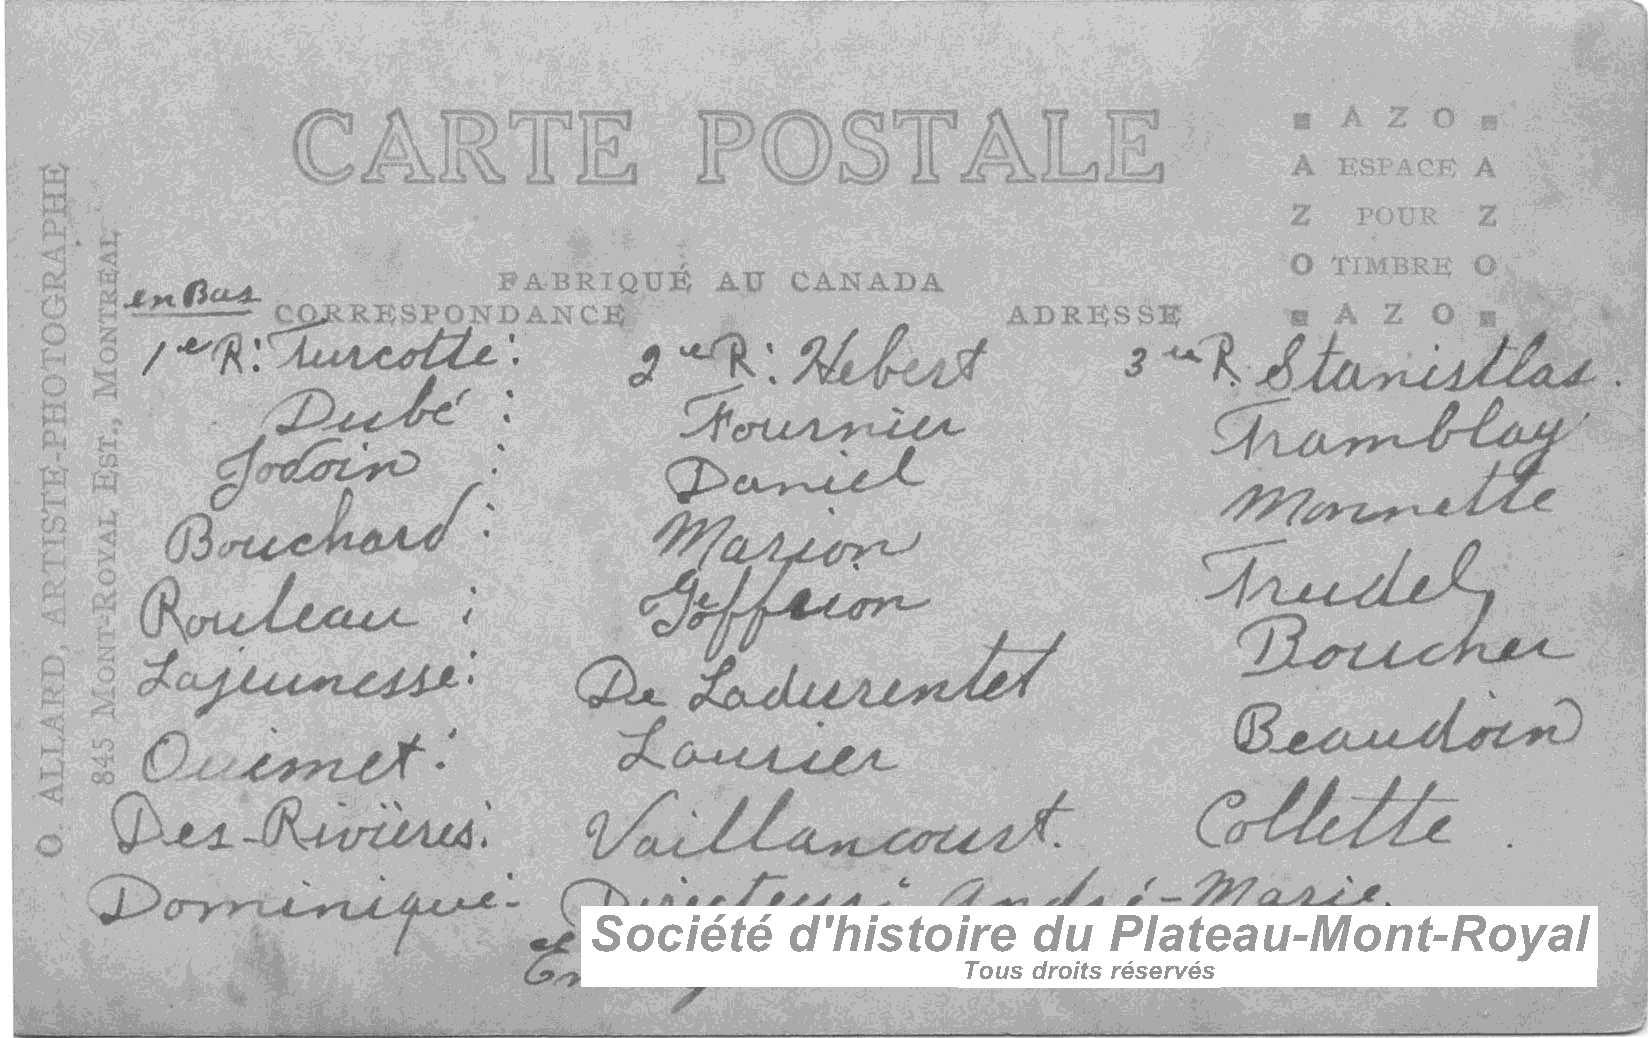 CARTE POSTALE
A Z O
A ESPACE A
Z POUR Z
O TIMBRE O
A Z O
FABRIQUÉ AU CANADA
CORRESPONDANCE
ADRESSE
O. ALLARD, ARTISTE-PHOTOGRAPHE
845 MONT-ROYAL EST., MONTREAL
en Bas
1er R: Turcotte:
Dubé :
Jodoin :
Bouchard :
Rouleau ;
Lajeunesse:
Ouimet:
Des-Rivières:
Dominique-
2ie R: Hebert
Fournier
Daniel
Marion
Geoffrion
De Ladurentet
Laurier
Vaillancourt.
3ie R. Stanistlas.
Tramblay
Monnette
Trudel,
Boucher
Beaudoin
Collette.
Directeur: André-Marie.
Société d'histoire du Plateau-Mont-Royal
Tous droits réservés